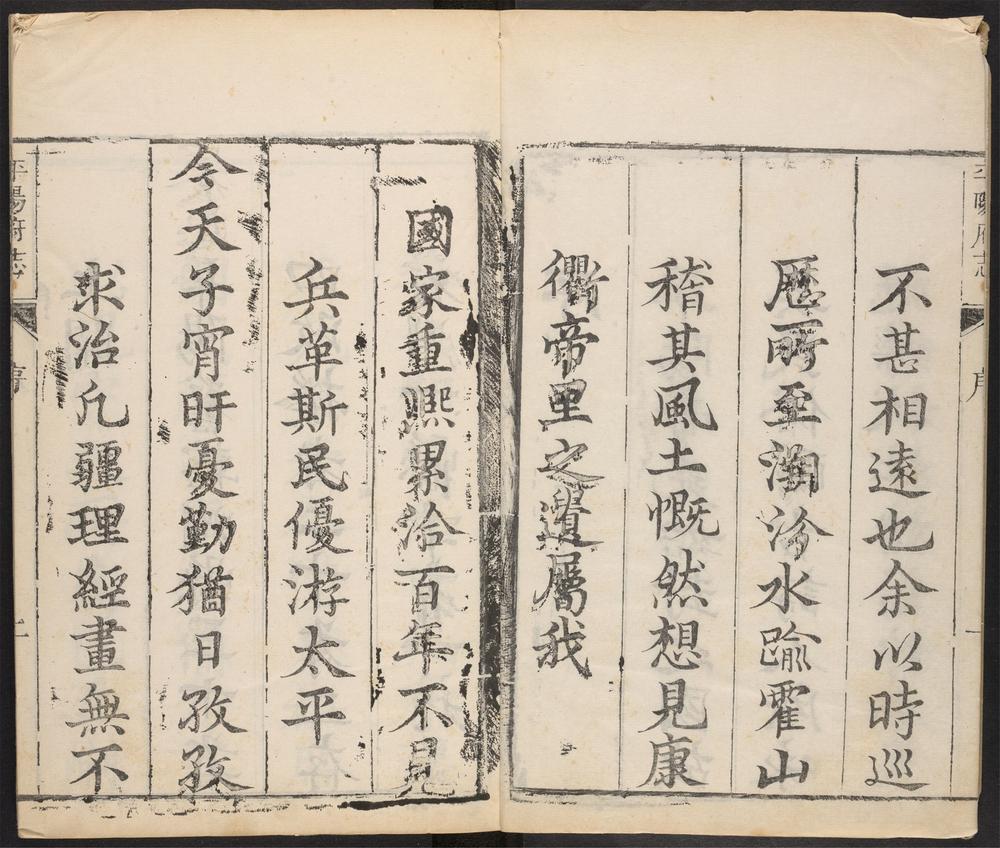 平陽府志
序
不甚相遠也余以時巡
歷所至溯汾水踰霍山
稽其風土慨然想見康
衢帝里之遺屬我
國家重熈累洽百年不見
兵革斯民優游太平
今天子宵旰憂勤猶日孜孜
求治凡疆理經畫無不
平陽府志
序
二